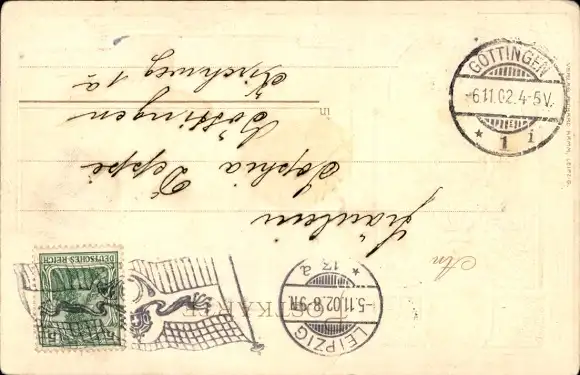 POSTKARTE
An
Fräulein
Sophie Deppe
in
Göttingen
Kirchweg 1a
DEUTSCHES REICH
5 5
LEIPZIG
-5.11.02.8-9N.
* 13 *
a
GÖTTINGEN
-6.11.02.4-5V.
* 1 i